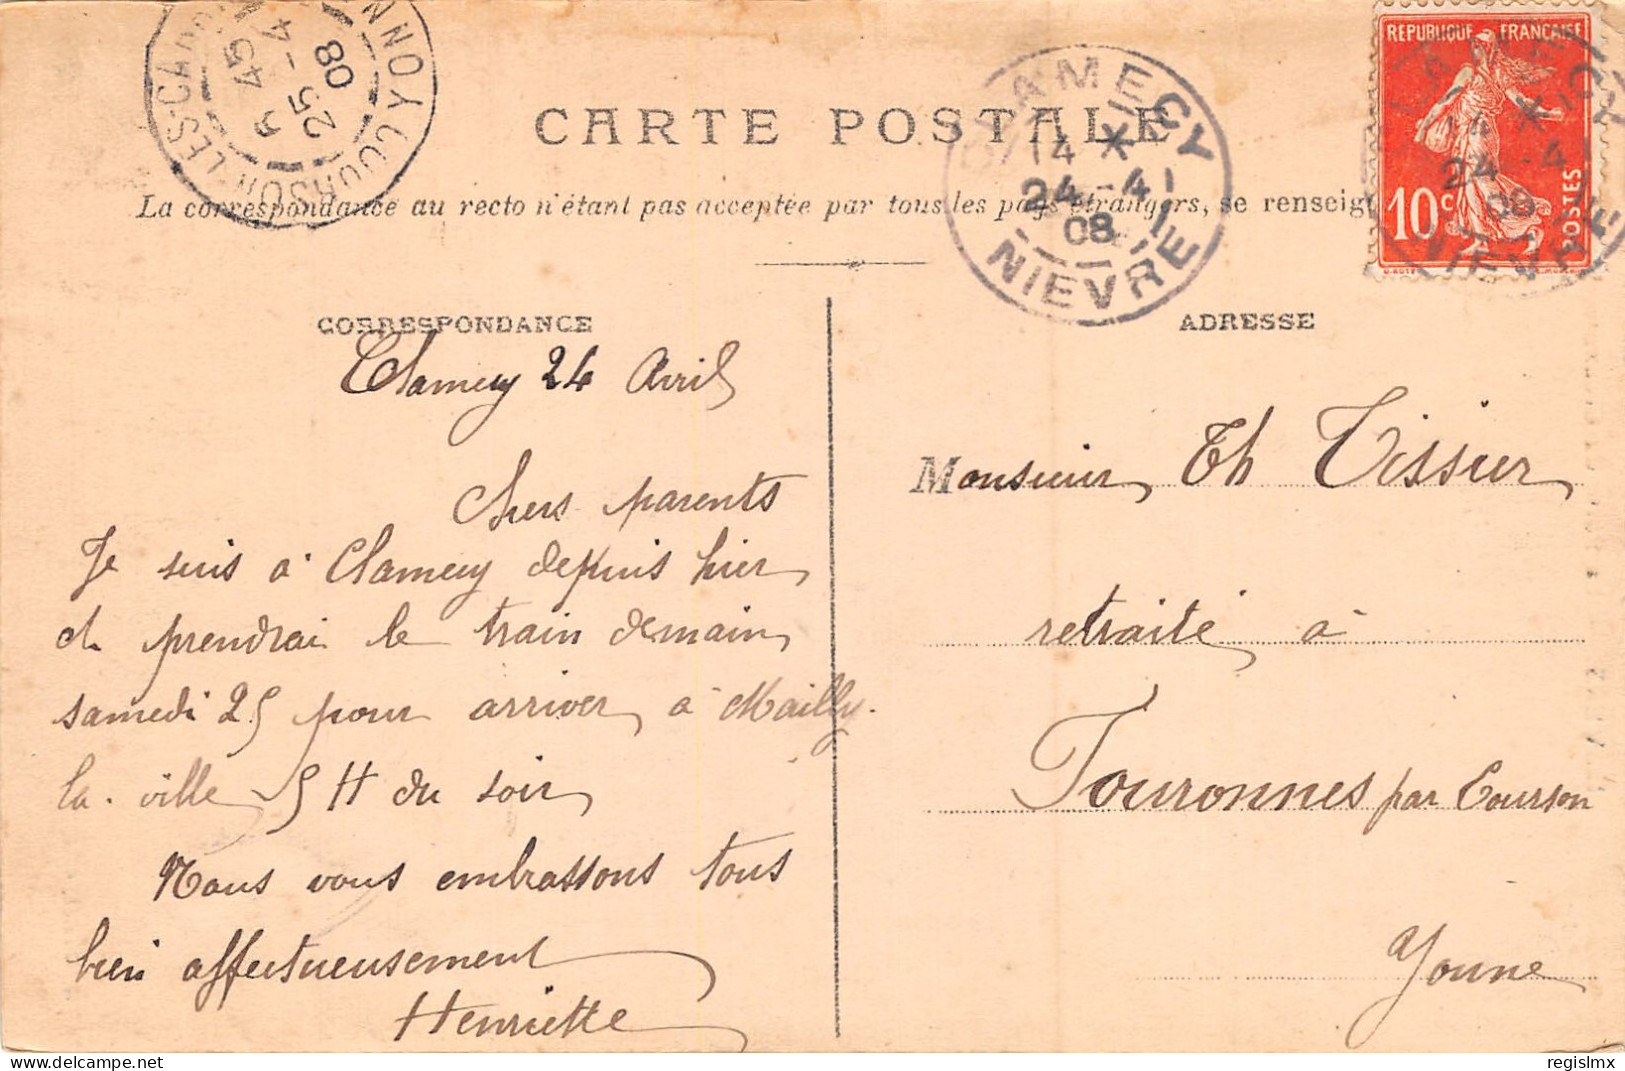 COURSON-LES-CARRIÈRES YONNE
6 45
25-4
08
CARTE POSTALE
CLAMECY
14 *
24-4
08
NIEVRE
REPUBLIQUE FRANÇAISE
10c
POSTES
CLAMECY
14 *
24-4
08
NIEVRE
La correspondance au recto n'étant pas acceptée par tous les pays étrangers, se renseig
CORRESPONDANCE
Clamecy 24 Avril
Chers parents
Je suis à Clamecy depuis hier
et prendrai le train demain
samedi 25 pour arriver à Mailly.
la. ville 5 H du soir
Nous vous embrassons tous
bien affectueusement
Henriette
ADRESSE
Monsieur Th Tissier
retraité à
Fouronnes par Courson
Yonne
regislmx